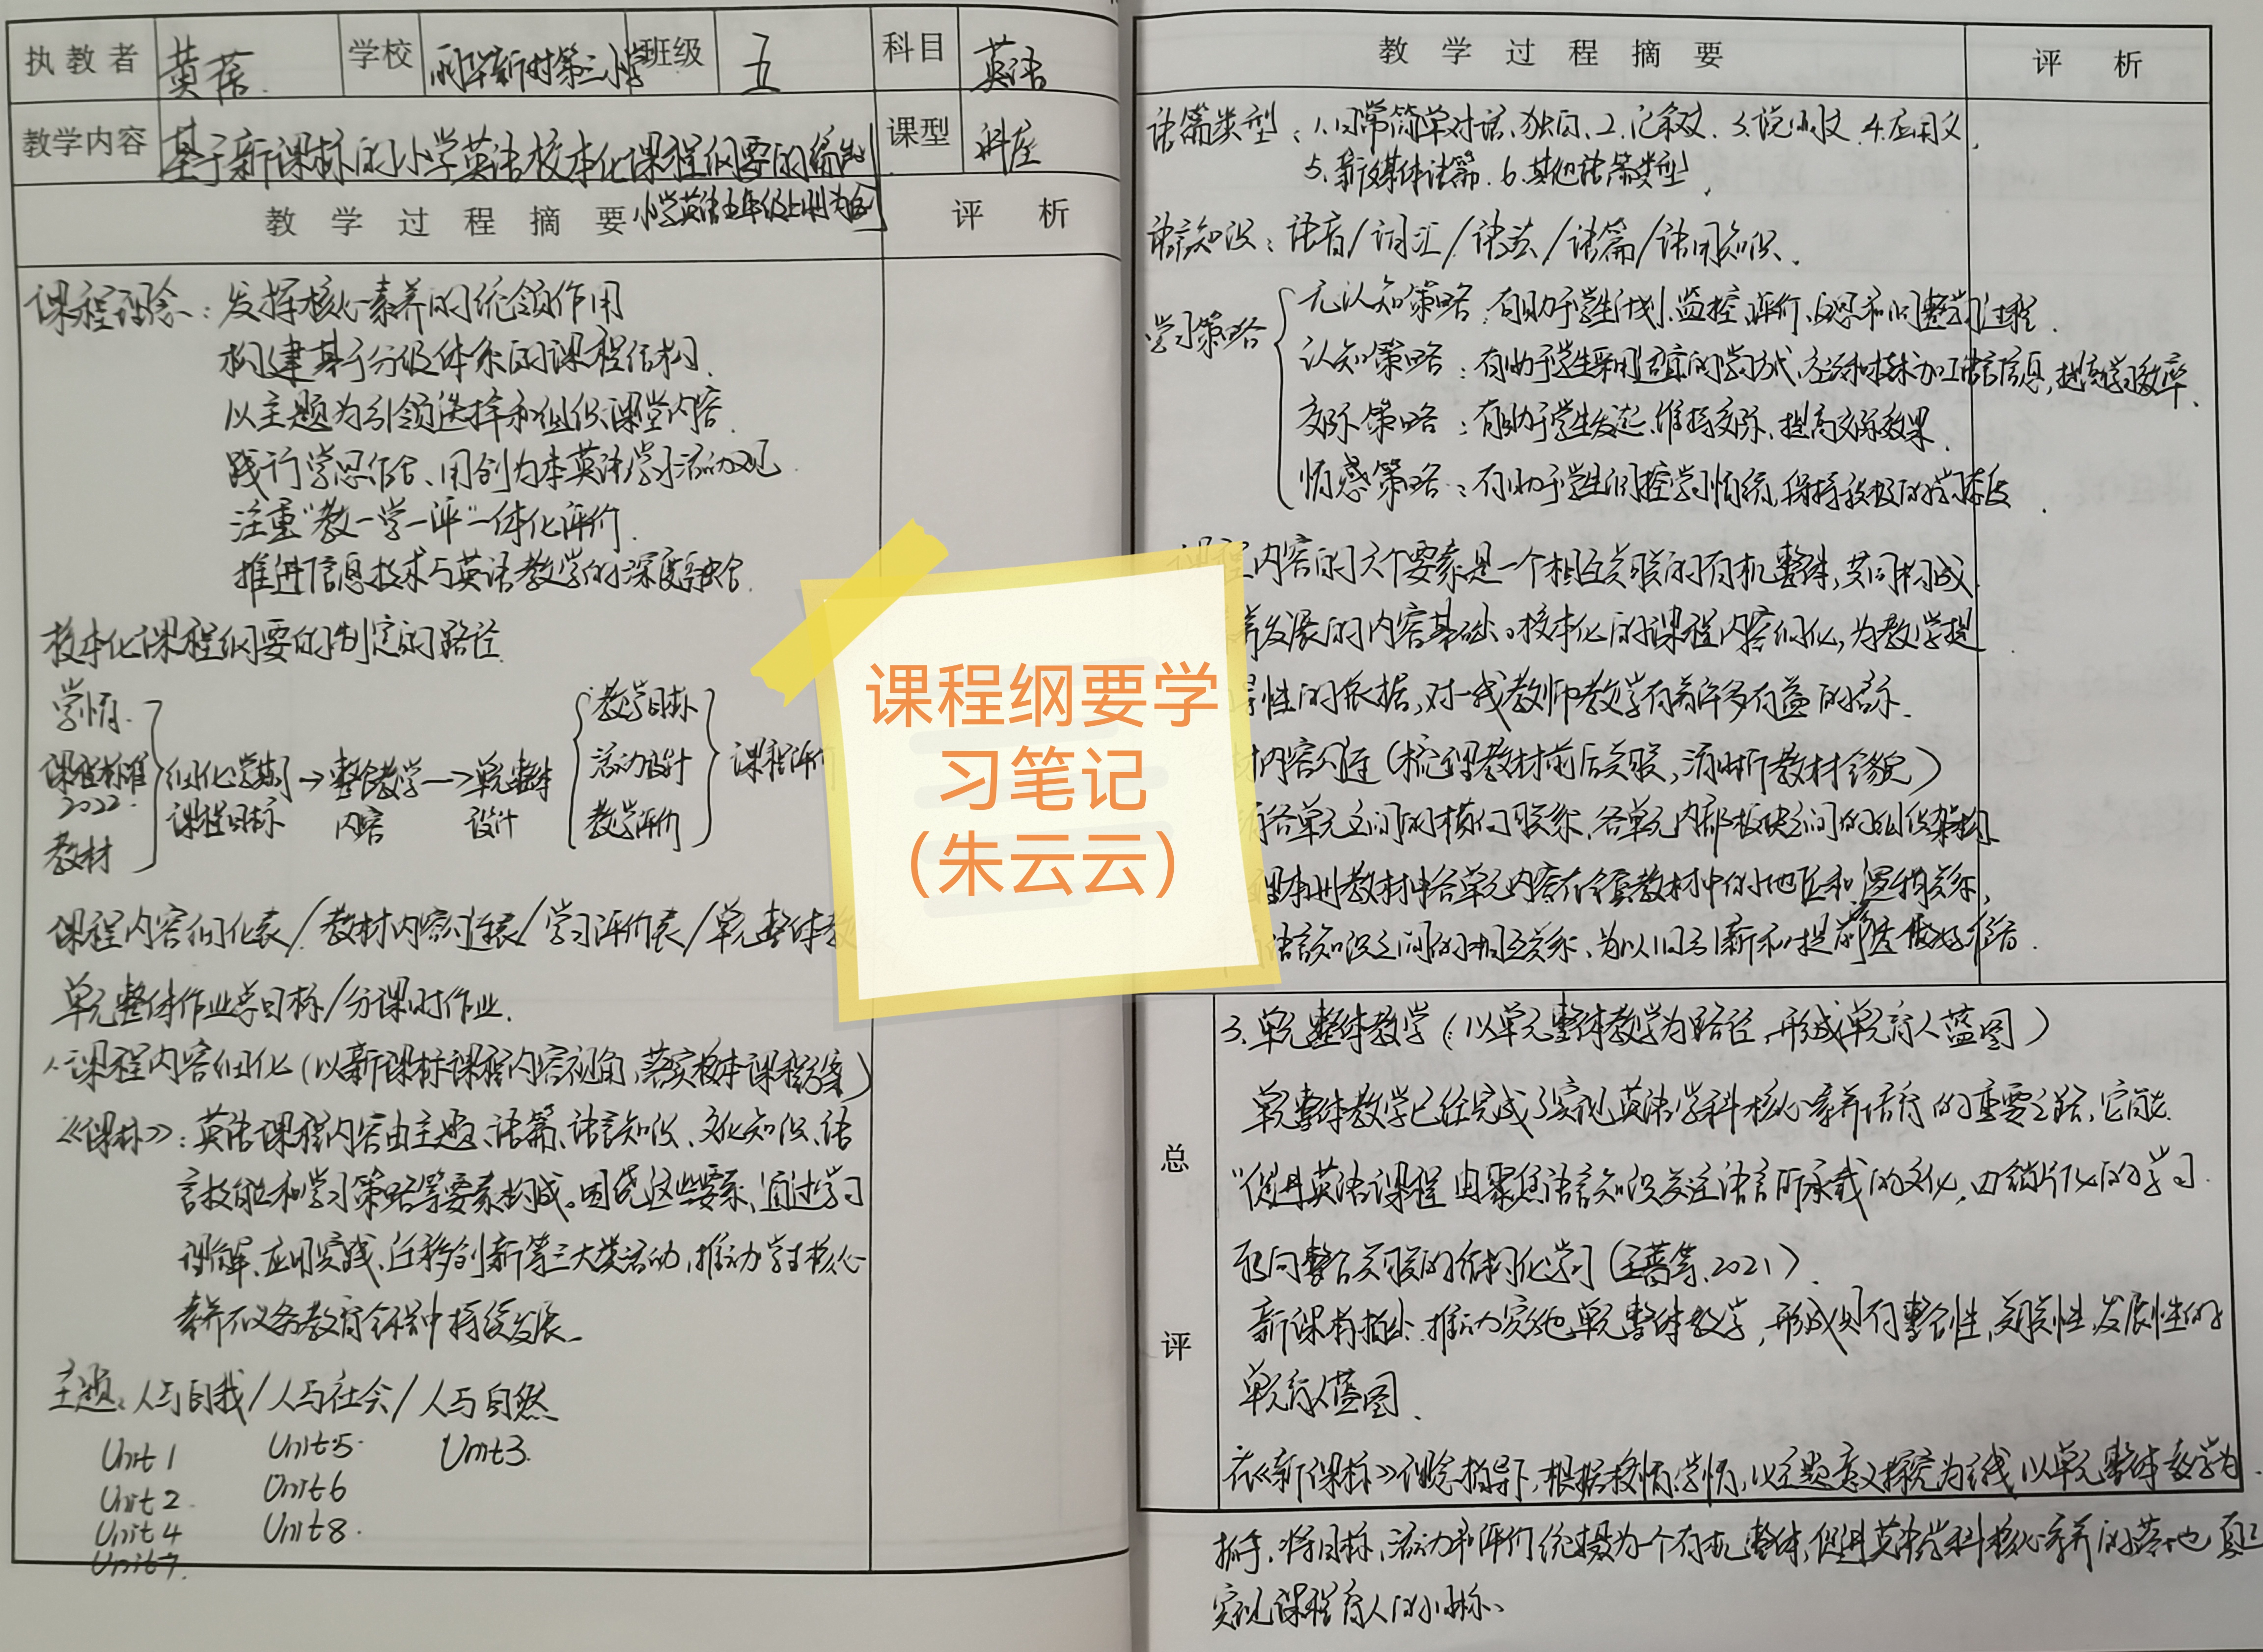 执教者 黄蓓 学校 新村第二小学 班级 五 科目 英语
教学内容 基于新课标的小学英语校本化课程纲要的编制 课型 讲座
小学英语五年级上册为例
教学过程摘要 评析
课程理念：发挥核心素养的统领作用
构建基于分级体系的课程结构.
以主题为引领选择和组织课堂内容.
践行学思结合、用创为本英语学习活动观.
注重“教—学—评”一体化评价.
推进信息技术与英语教学的深度融合.
校本化课程纲要的制定的路径.
学情.
课程标准2022.
教材
细化学期课程目标→整合教学内容→单元整体设计
教学目标
活动设计
教学评价
课程评价
课程内容细化表/教材内容勾连表/学习评价表/单元整体教
单元整体作业目标/分课时作业.
1.课程内容细化(以新课标课程内容视角,落实校本课程)
《课标》:英语课程内容由主题、语篇、语言知识、文化知识、语
言技能和学习策略等要素构成。围绕这些要素,通过学习
理解、应用实践、迁移创新等三大类活动,推动学生核心
素养在义务教育全程中持续发展.
主题:人与自我/人与社会/人与自然
Unit 1 Unit 5. Unit 3.
Unit 2. Unit 6
Unit 4 Unit 8.
Unit 7.
课程纲要学
习笔记
（朱云云）
教学过程摘要 评析
语篇类型:1.日常简单对话、独白.2.记叙文.3.说明文.4.应用文,
5.新媒体语篇.6.其他语篇类型.
语言知识:语音/词汇/语法/语篇/语用知识.
学习策略
元认知策略:有助于学生计划、监控、评价、反思和调整学习过程.
认知策略:有助于学生采用适宜的学习方式、策略和技术加工语言信息,提高学习效率.
交际策略:有助于学生发起、维持交际、提高交际效果.
情感策略:有助于学生调控学习情绪,保持积极的学习态度.
课程内容的六个要素是一个相互关联的有机整体,共同构成
养发展的内容基础。校本化的课程内容细化,为教学提
导性的依据,对一线教师教学有着许多有益的启示.
材内容勾连(梳理教材前后关联,清晰教材全貌)
各单元之间的横向联系、各单元内部板块之间的组织架构
本册教材中各单元内容在全套教材中的地位和逻辑关系,
语言知识之间的相互关系,为以旧引新和提前渗透做好准备.
总评
3.单元整体教学(以单元整体教学为路径,形成单元育人蓝图)
单元整体教学已经完成了实现英语学科核心素养培育的重要之路,它能
“促进英语课程由聚焦语言知识关注语言所承载的文化,由碎片化的学习
转向整合关联的结构化学习(王蔷等,2021).
新课标指出:推动实施单元整体教学,形成具有整合性、关联性、发展性的
单元育人蓝图.
在《新课标》理念指导下,根据校情、学情,以主题意义探究为主线,以单元整体教学为
抓手,将目标、活动和评价统摄为一个有机整体,促进英语学科核心素养的落地,真正
实现课程育人的目标.